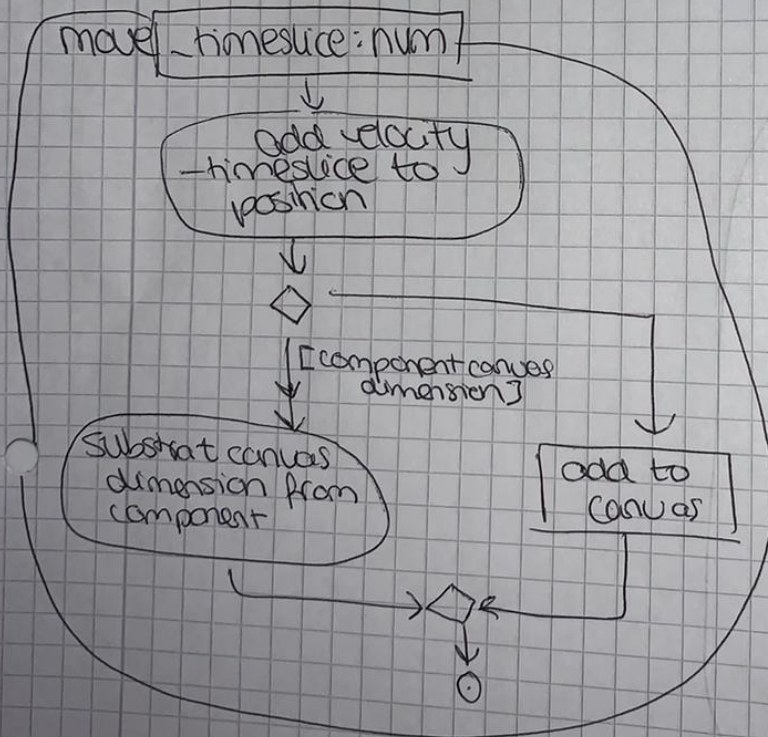 move _timeslice:num
add velocity
-timeslice to
position
[component canvas
dimension]
substrat canvas
dimension from
component
add to
canvas